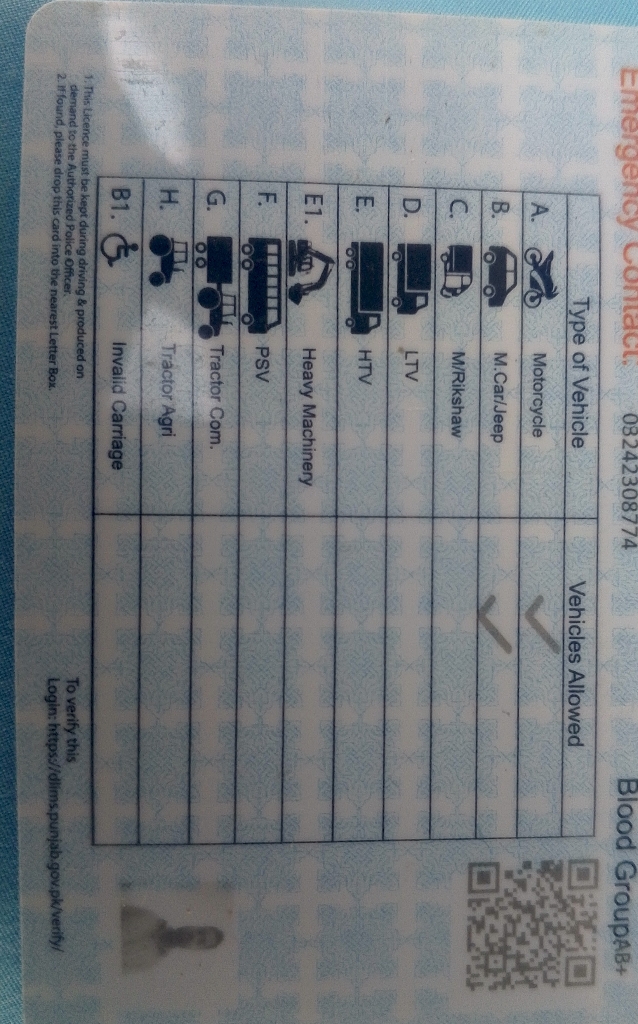 Emergency Contact: 03242308774 Blood Group AB+
Type of Vehicle Vehicles Allowed
A. Motorcycle ✓
B. M.Car/Jeep ✓
C. M/Rikshaw
D. LTV
E. HTV
E1. Heavy Machinery
F. PSV
G. Tractor Com.
H. Tractor Agri
B1. Invalid Carriage
1. This Licence must be kept during driving & produced on
demand to the Authorized Police Officer.
2. If found, please drop this card into the nearest Letter Box.
To verify this
Login: https://dlims.punjab.gov.pk/verify/